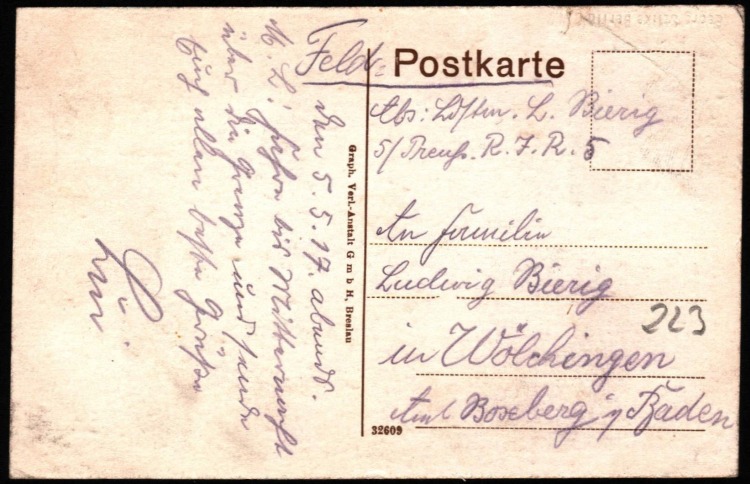 Feld-
Postkarte
Abs: Ldstm. L. Bierig
5/ Preuß. R. I. R. 5
An Familie
Ludwig Bierig
in Wölchingen
Amt Boxberg i/ Baden
223
32609
Graph. Verl.-Anstalt G m b H, Breslau
den 5. 5. 17. abends.
M. L! Fahre bis Mitternacht
über die Grenze und sende
Euch allen beste Grüße